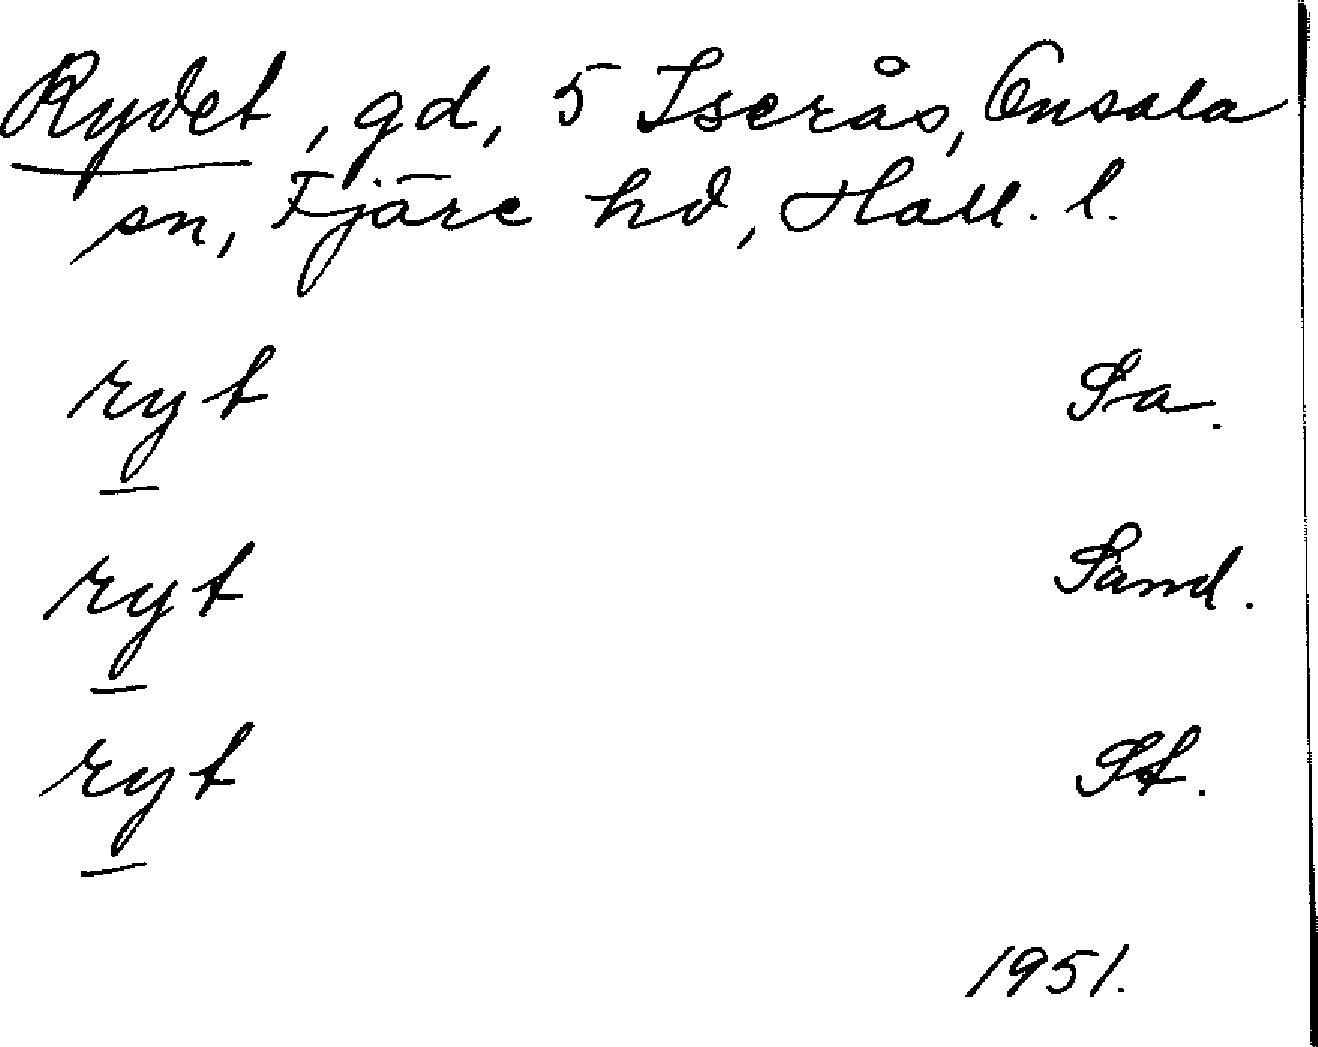 Rydet, gd, 5 Iserås, Onsala
sn, Fjäre hd, Hall. l.
ryt Sa.
ryt Sand.
ryt St.
1951.